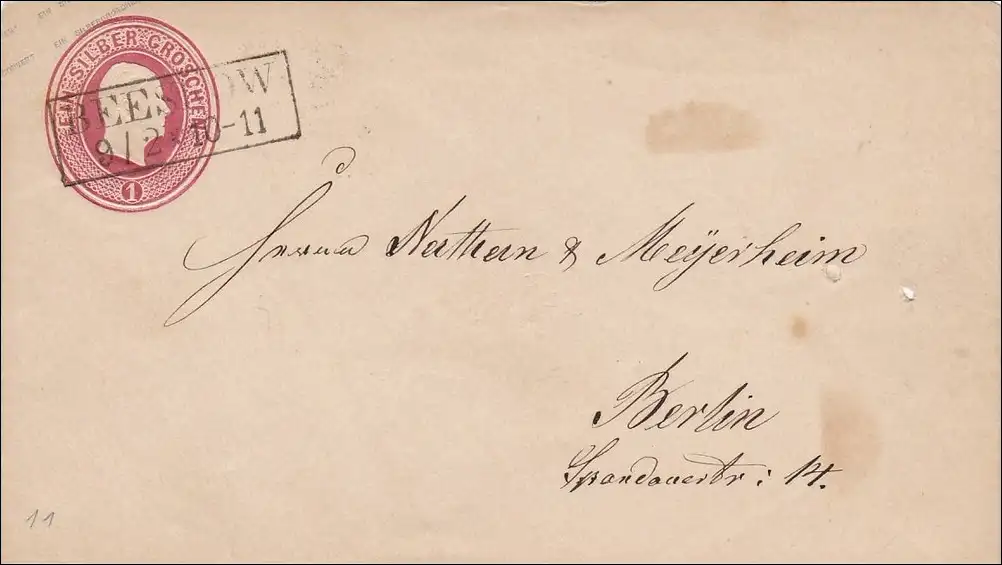 EIN SILBERGROSCHEN
EIN SILBER GROSCHEN
1
BEESKOW
9/2 * 10-11
Herren Nathan & Meÿerheim
Berlin
Spandauerstr: 14.
11